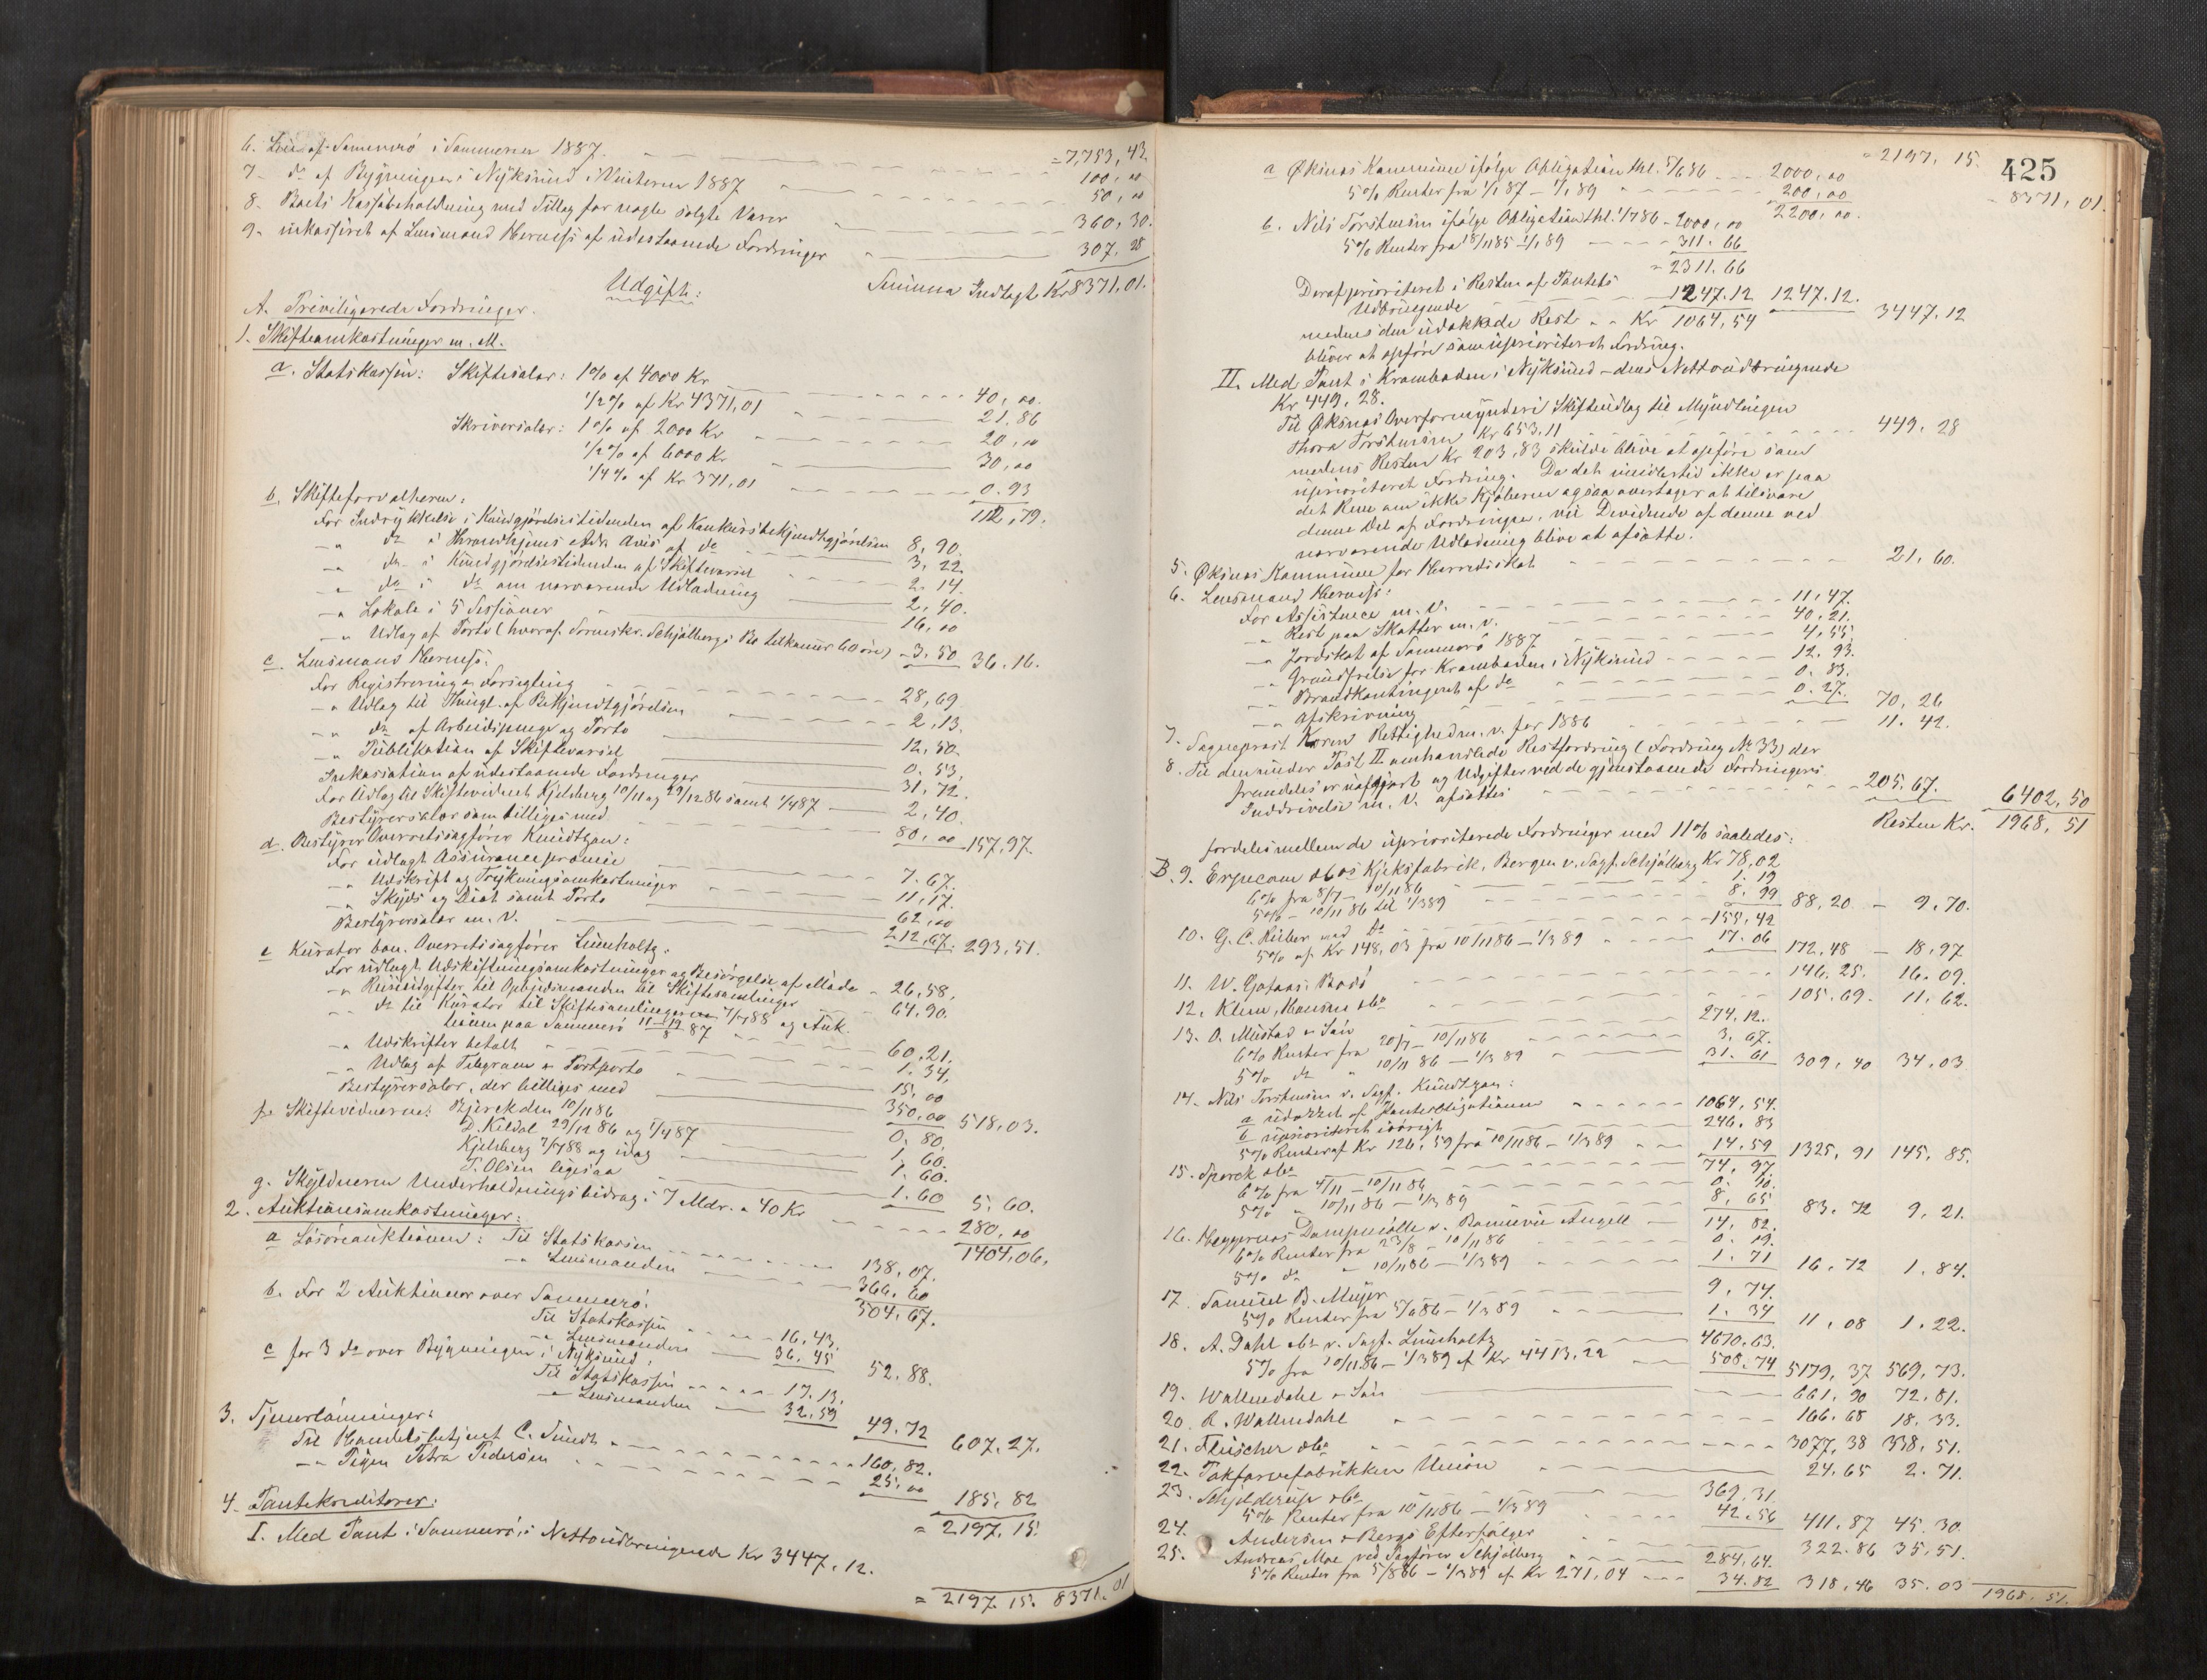 = 7,753,43.
6. Leie af Sammerö i Sommeren 1887. 100,00
7. do af Bygningen i Nyksund i Vinteren 1887 50,00
8. Boets Kassebeholdning med Tillæg for nogle solgte Varer 360,30.
9. inkasseret af Lensmand Hernæs af udestaaende Fordringer 307,28
Summa Indtægt Kr 8371,01.
Udgift:
A. Priviligerede Fordringer.
1. Skifteomkostninger m. M.
a. Statskassen: Skiftesalær: 1% af 4000 Kr 40,00.
1/2% af Kr 4371,01 21.86
Skriversalær: 1% af 2000 Kr 20,00
1/2% af 6000 Kr 30,00
1/4% af Kr 371,01 0.93
112,79.
b. Skifteforvalteren:
For Indrykkelse i Kundgjörelsestidenden af Konkursbekjendtgjörelsen 8,90.
" do i Throndhjems Adr. Avis af do 3,22.
" do i Kundgjörelsestidenden af Skiftevarsel 2.14.
" do i do om nærværende Udlodning 2,40.
" Lokale i 5 Sessioner 16,00
" Udlæg af Porto (hvoraf Sorenskr. Schjölbergs Bo tilkommer 60 öre) 3.50 36.16.
c. Lensmand Hernæs:
For Registrering & Forsegling 28,69.
" Udlæg til Thingl. af Bekjendtgjörelsen 2,13.
" do af Arbeidspenge og Porto 12,50.
" Publikation af Skiftevarsel 0.53.
Inkassation af udestaaende Fordringer 31,72.
For Udlæg til Skiftevidnet Kjelsberg 10/11 og 29/12 86 samt 1/4 87 2,40.
Bestyrersalær som billiges med 80,00 157,97.
d. Bestyrer Overretssagförer Knudtzon:
For udlagt Assurancepræmie 7.67.
" Udskrift og Trykningsomkostninger 11,17.
" Skyds og Diæt samt Porto 62,00
Bestyrersalær m. V. 212,67. 293,51.
e Kurator bon. Overretssagförer Lumholtz:
For udlagt Udskiftningsomkostninger og Besörgelse af Möde 26,58.
" Reiseudgifter til Opbudsmanden til Skiftesamlinger 64,90.
" do til Kurator til Skiftesamlingerne 7/4 88 og Auk-
tionen paa Sammerö 11–19/8 87 60,21.
" Udskrifter betalt 1.34.
" Udlæg af Telegram & Postporto 15,00
Bestyrersalær, der billiges med 350,00 518,03.
f. Skiftevidnerne: Bjerekden 10/11 86 0.80.
D. Kildal 29/12 86 og 1/4 87 1.60.
Kjelsberg 7/4 88 og idag 1.60.
P. Olsen ligesaa 1.60 5,60.
g. Skyldneren Underholdningsbidrag i 7 Mdr. a 40 Kr 280,00
1404,06.
2. Auktionsomkostninger:
a Lösöreauktionen: Til Statskassen 138,07.
" Lensmanden 366,60
504,67.
b. For 2 Auktioner over Sammerö:
Til Statskassen 16,43.
" Lensmanden 36,45 52.88.
c for 3 do over Bygningen i Nyksund:
Til Statskassen 17.13.
" Lensmanden 32,59 49,72 607.27.
3. Tjenerlönninger:
Til Handelsbetjent C. Sundt 160,82.
" Pigen Petra Pedersen 25,00 185,82
= 2197,15.
4. Pantekreditorer:
I. Med Pant i Sammerö, i Nettoudbringende Kr 3447,12.
= 2197.15. 8371.01
425
= 2197,15. 8371,01.
a Öksnes Kommune ifölge Obligation thl. 5/6 86 2000,00
5% Renter fra 1/1 87 – 1/1 89 200,00
2200,00.
b. Nils Torstensen ifölge Obligation thl. 1/7 86 2000,00
5% Renter fra 18/11 85 – 1/1 89 311.66
= 2311.66
Deraf prioriteret i Resten af Pantets
Udbringende 1247.12 1247.12. 3447.12
medens den udækkede Rest Kr 1064,54
bliver at opföre som uprioriteret Fordring.
II. Med Pant i Kramboden i Nyksund – dens Nettoudbringende
Kr 449,28.
Til Öksnes Overformynderi Skifteudlæg til Myndlingen
Thora Torstensen Kr 653,11 449.28
medens Resten Kr 203,83 skulde blive at opföre som
uprioriteret Fordring. Da det imidlertid ikke er paa
det Rene om ikke Kjöberen ogsaa overtager at tilsvare
denne Del af Fordringen, vil Dividende af denne ved
nærværende Udlodning blive at afsætte.
5. Öksnes Kommune for Herredsskat 21,60.
6. Lensmand Hernæs:
For Assistance m. v. 11.47.
" Rest paa Skatter m. v. 40.21.
" Jordskat af Sammerö 1887 4,55.
" Grundfrelse for Kramboden i Nyksund 12.93.
" Brandkontingent af do 0.83.
" Afskrivning 0.27. 70,26
7. Sogneprest Koren Rettighed m. v. for 1886 11.42.
8. Til den under Post II omhandlede Restfordring (Fordring No 33) der
fremdeles er uafgjort og Udgifter ved de gjenstaaende Fordringers
Inddrivelse m. V. afsættes 205.67. 6402,50
Resten Kr. 1968,51
fordeles mellem de uprioriterede Fordringer med 11% saaledes:
B. 9. Ergecom & Cos Kjeksfabrik, Bergen v. Sagf. Schjölberg Kr 78,02
6% fra 8/7 – 10/11 86 1.19
5% – 10/11 86 til 1/3 89 8.99 88,20 – 9.70.
10. G. C. Rieber ved do 155,42
5% af Kr 148,03 fra 10/11 86 – 1/3 89 17.06 172,48 – 18.97
11. W. Gotaas, Bodö 146.25. 16.09.
12. Klem, Hansen & Co 105.69. 11.62.
13. O. Mustad & Sön 274,12.
6% Renter fra 20/7 – 10/11 86 3.67.
5% do " 10/11 86 – 1/3 89 31.61 309,40 34.03
14. Nils Torstensen v. Sagf. Knudtzon:
a udækket af Panteobligationen 1064,54.
b uprioriteret iövrigt 246.83
5% Renter af Kr 126,59 fra 10/11 86 – 1/3 89 14.59 1325,91 145,85.
15. Sporck & Co 74,97.
6% fra 4/11 – 10/11 86 0.10.
5% " 10/11 86 – 1/3 89 8,65 83.72 9,21.
16. Heggernæs Dampmölle v. Banuvie Angell 14,82.
6% Renter fra 23/8 – 10/11 86 0.19.
5% do " 10/11 86 – 1/3 89 1.71 16.72 1.84.
17. Samuel B. Meyer 9,74.
5% Renter fra 5/6 86 – 1/3 89 1.34 11,08 1.22.
18. A. Dahl & Co v. Sagf. Lumholtz 4670.63.
5% fra 10/11 86 – 1/3 89 af Kr 4413.22 508.74 5179,37 569,73.
19. Wallendahl & Sön 661,90 72.81.
20 R. Wallendahl 166.68 18.33.
21. Fleischer & Co 3077,38 338,51.
22. Takfarvefabrikken Union 24,65 2.71.
23. Schjelderup & Co 369,31.
5% Renter fra 10/11 86 – 1/3 89 42.56 411,87 45.30.
24. Andersen & Bergs Efterfölger 322.86 35,51.
25. Andreas Moe ved Sagförer Schjölberg 284,64.
5% Renter fra 5/8 86 – 1/3 89 af Kr 271,04 34.82 318,46 35.03
1968,51.